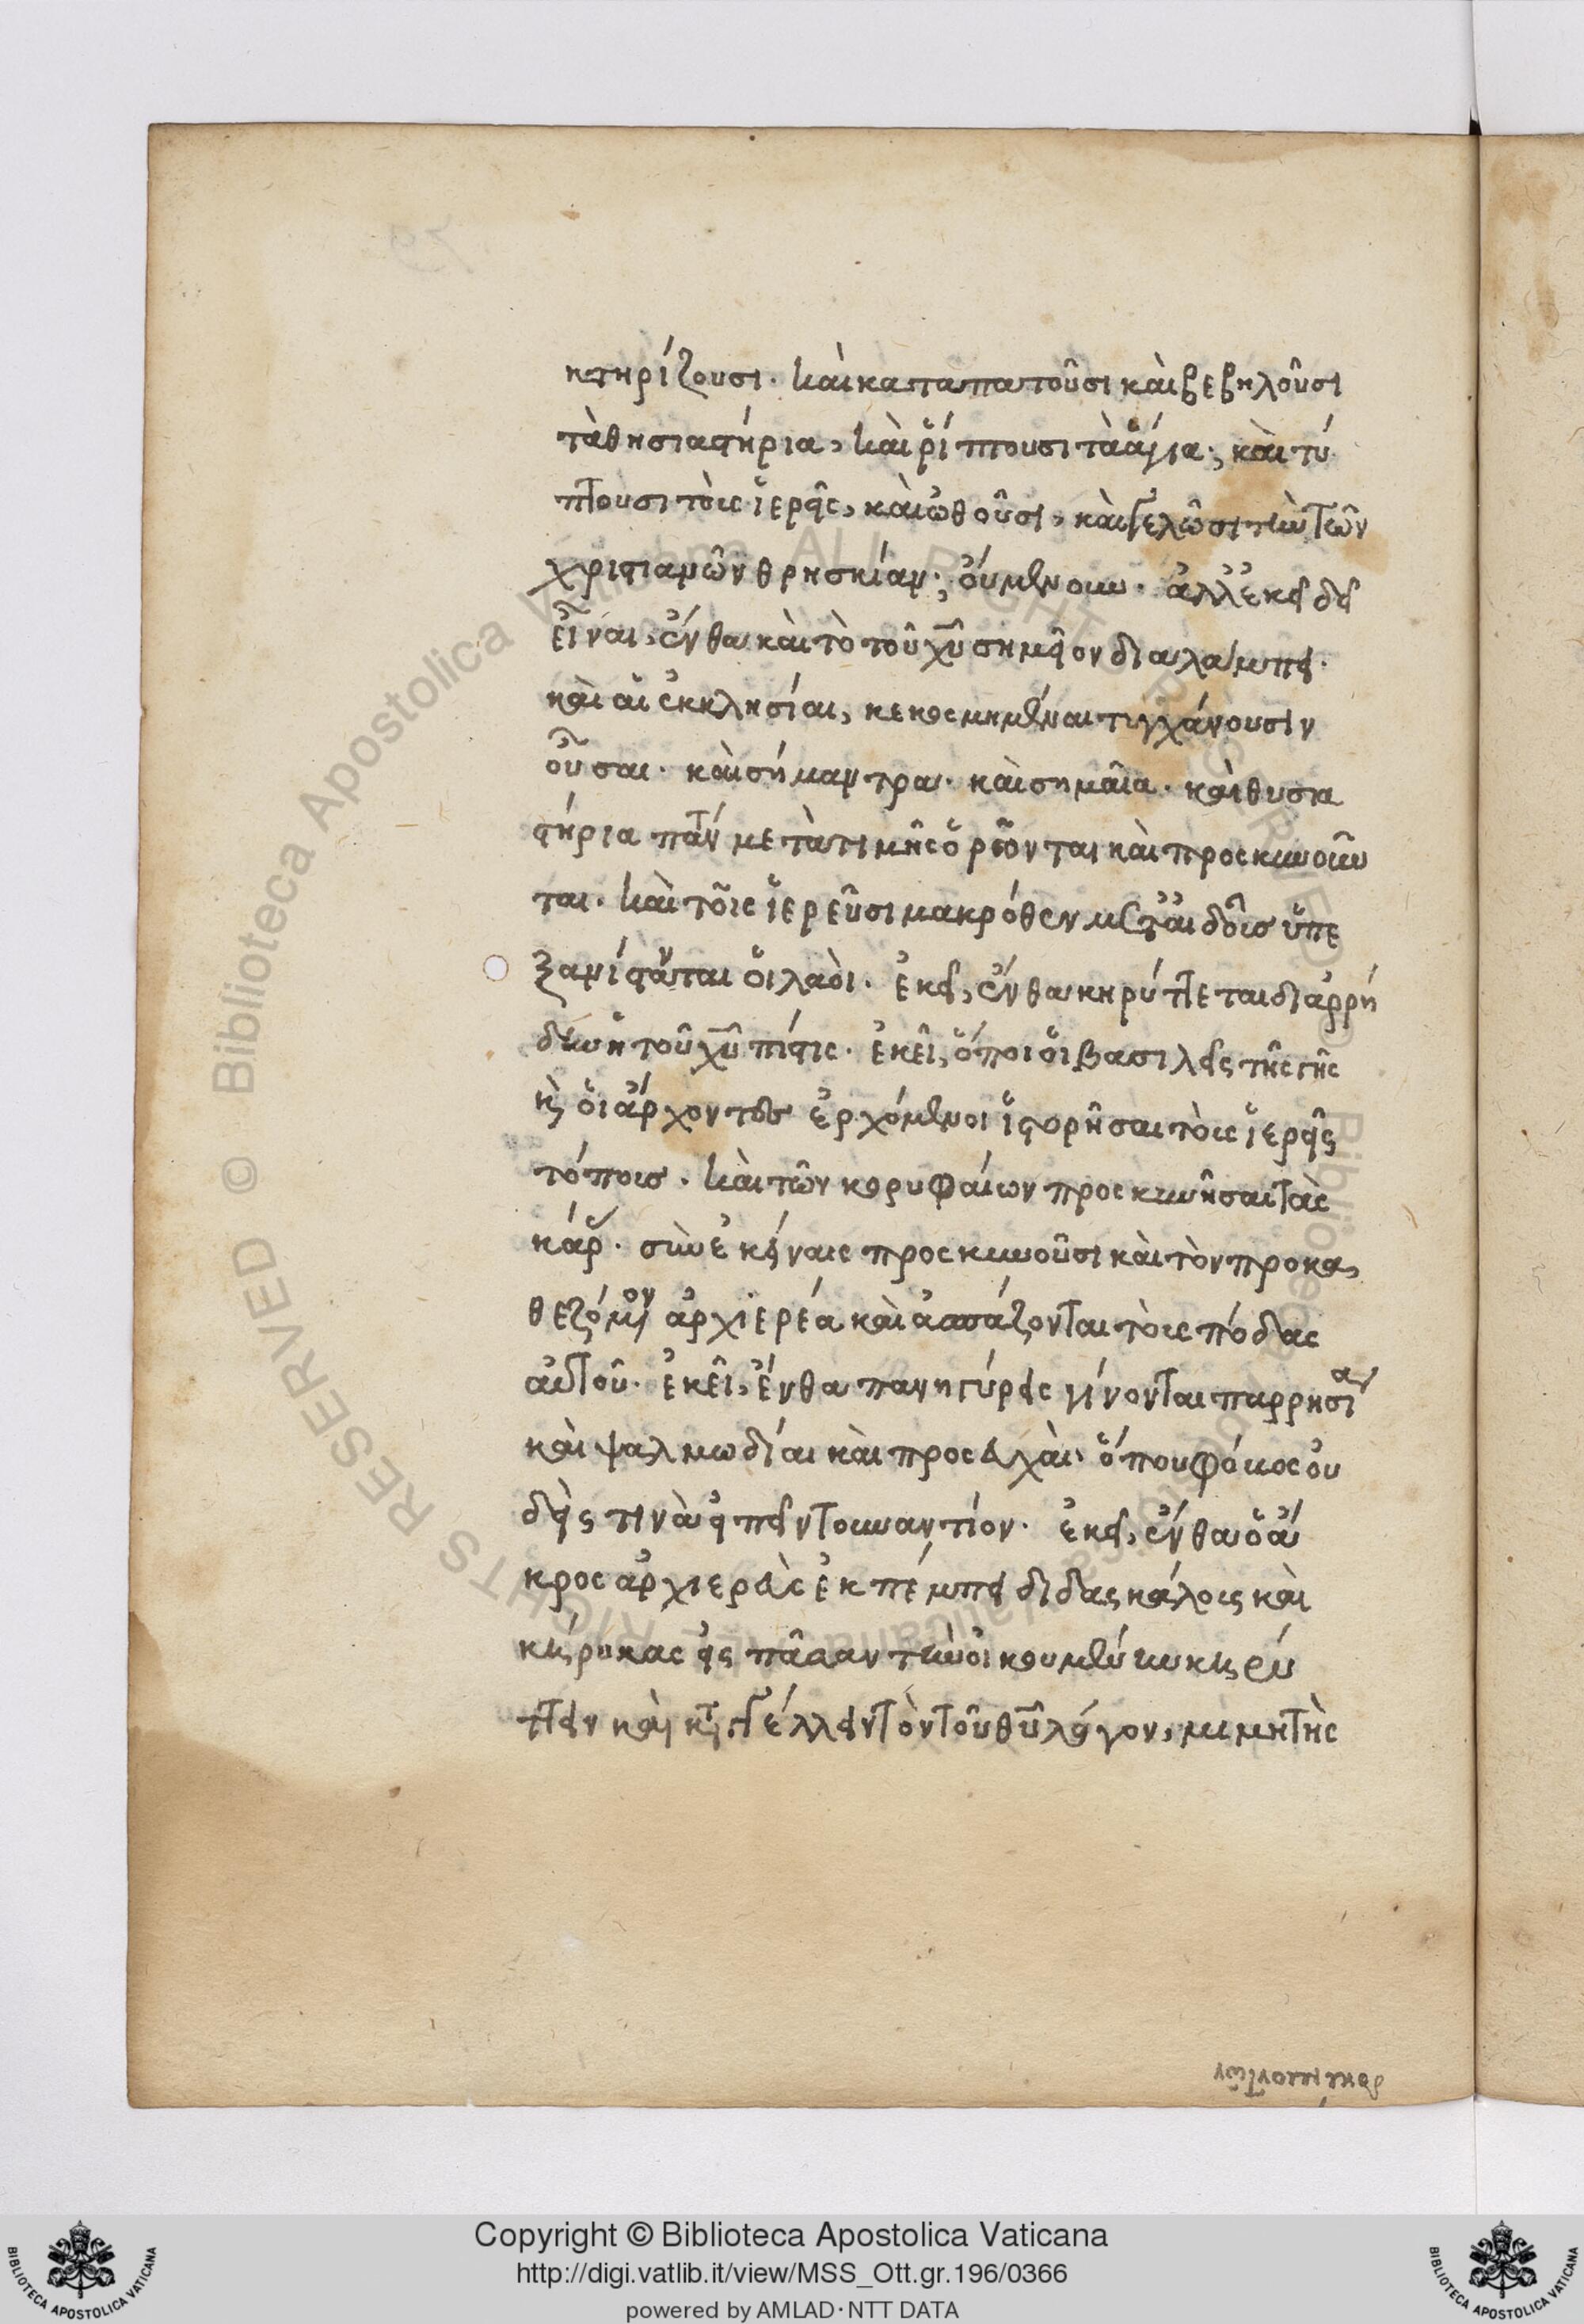 κτηρίζουσι· καὶ καταπατοῦσι καὶ βεβηλοῦσι
τὰ θησιαστήρια, καὶ ῥίπτουσι τὰ ἅγια·, καὶ τύ
πτουσι τοὺς ἱερεῖς, καὶ ὠθοῦσι, καὶ γελῶσι τὴν τῶν
χριστιανῶν θρησκίαν·, οὐ μὲν οὖν· ἀλλ' ἐκεῖ δεῖ
εἶναι, ἔνθα καὶ τὸ τοῦ χυ σημεῖον διαλάμπει·
καὶ αἱ ἐκκλησίαι, κεκοσμημέναι τυγχάνουσιν
οὖσαι· καὶ σήμαντρα· καὶ σημαῖα· καὶ θυσια
στήρια πάντ μετὰ τιμῆς ὁρῶνται καὶ προσκυνοῦν
ται· καὶ τοῖς ἱερεῦσι μακρόθεν μετ' αἰδοῖς ὑπε
ξανίστανται οἱ λαοὶ· ἐκεῖ, ἔνθα κηρύττεται διαρρή
δην ἡ τοῦ χυ πίστις· ἐκεῖ, ὅποι οἱ βασιλεῖς τῆς γῆς
κ οἱ ἄρχοντες ἐρχόμενοι ἱστορῆσαι τοὺς ἱερεῖς
τόπους· καὶ τῶν κορυφαίων προσκυνῆσαι τὰς
κάρ· σὺν ἐκείναις προσκυνοῦσι καὶ τὸν προκα
θεζόμον ἀρχιερέα καὶ ἀσπάζονται τοὺς πόδας
αὐτοῦ· ἐκεῖ, ἔνθα πανηγύρεις γίνονται παρρησία
καὶ ψαλμωδίαι καὶ προσευχαὶ· ὅπου φόβος οὐ
δεὶς τινὰ εἰπεῖν τοὐναντίον· ἐκεῖ, ἔνθα ὁ ἄ
κρος ἀρχιερεὺς ἐκπέμπει διδασκάλους καὶ
κήρυκας εἰς πᾶσαν τὴν οἰκουμένην κηρύ
ττειν καὶ κτγγέλλειν τὸν τοῦ θυ λόγον, μιμητὴς
δοκιμοντῶν
Copyright © Biblioteca Apostolica Vaticana
http://digi.vatlib.it/view/MSS_Ott.gr.196/0366
powered by AMLAD·NTT DATA